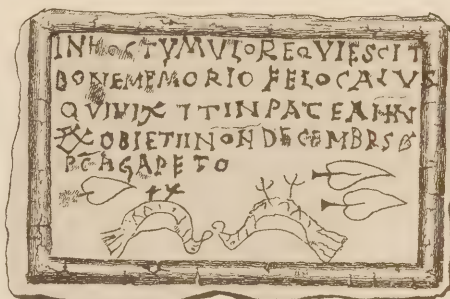 IN HOC TVMVLO REQVIESCIT
BONE MEMORIO FELOCALVS
QVI VIXIT IN PACE ANN
XX OBIET II NON DECEMBRS
AGAPETO